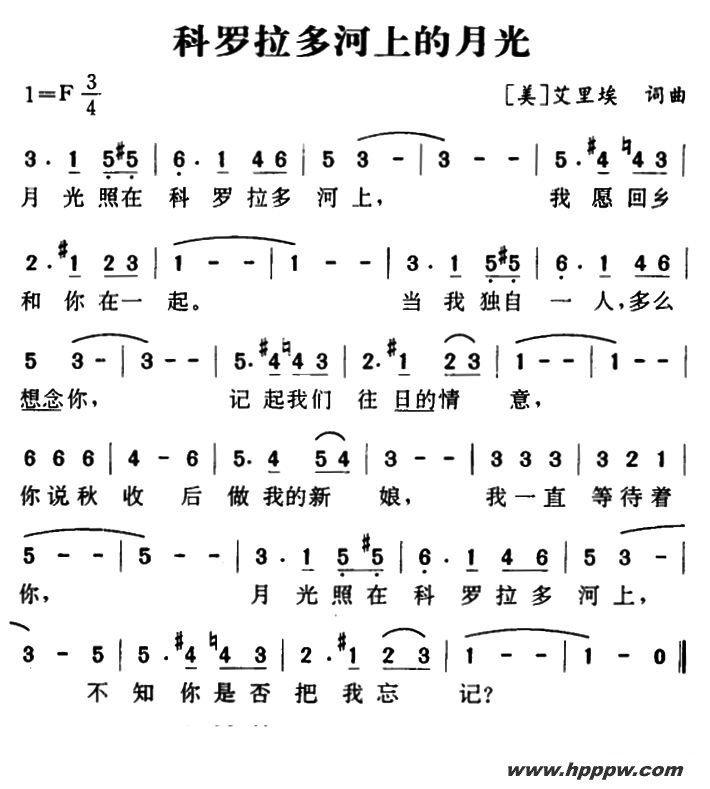 科罗拉多河上的月光
1=F 3/4 [美]艾里埃 词曲
3· 1 5 #5 | 6· 1 4 6 | 5 3 - | 3 - - | 5· #4 ♮4 3 |
月光照在科罗拉多河上, 我愿回乡
2· #1 2 3 | 1 - - | 1 - - | 3· 1 5 #5 | 6· 1 4 6 |
和你在一起。 当我独自一人,多么
5 3 - | 3 - - | 5· #4 ♮4 3 | 2· #1 2 3 | 1 - - | 1 - - |
想念你, 记起我们往日的情意,
6 6 6 | 4 - 6 | 5· 4 5 4 | 3 - - | 3 3 3 | 3 2 1 |
你说秋收后做我的新娘, 我一直等待着
5 - - | 5 - - | 3· 1 5 #5 | 6· 1 4 6 | 5 3 - |
你, 月光照在科罗拉多河上,
3 - 5 | 5· #4 ♮4 3 | 2· #1 2 3 | 1 - - | 1 - 0 ‖
不知你是否把我忘记?
www.hpppw.com